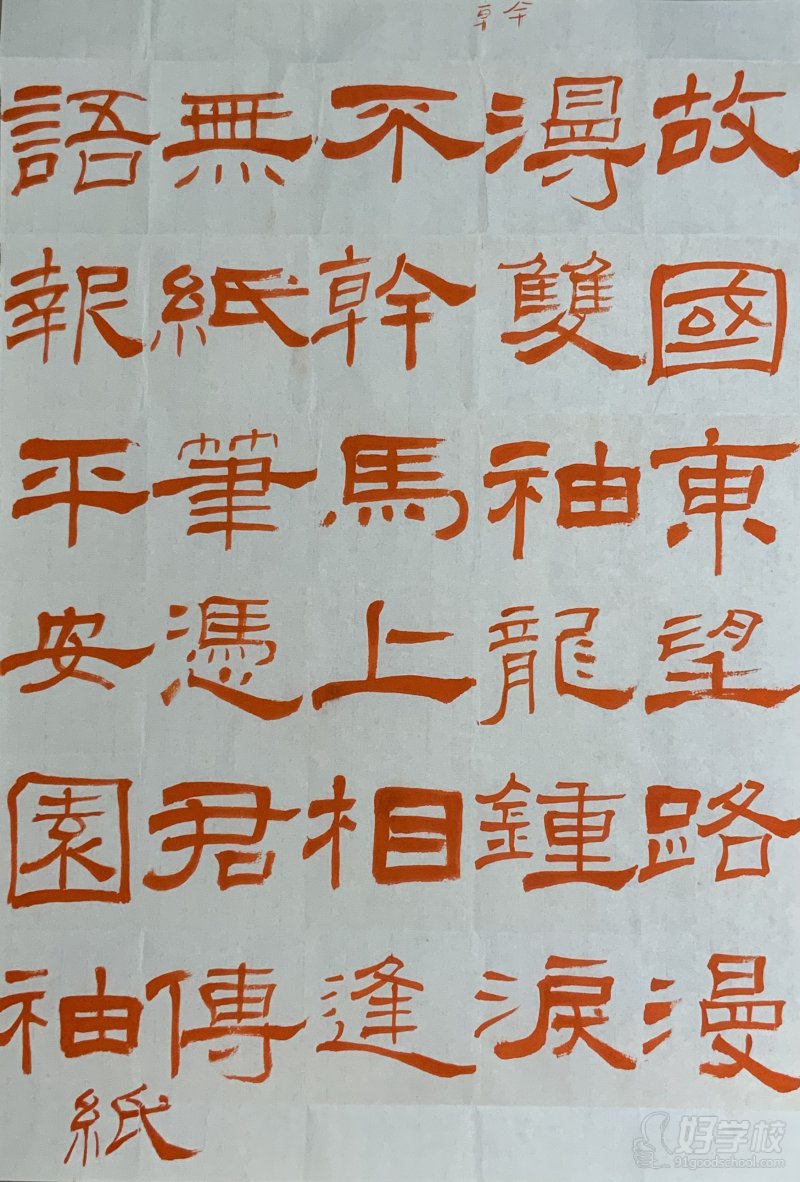 故國東望路漫
漫雙袖龍鍾淚
不幹馬上相逢
無紙筆憑君傳
語報平安園袖
紙
好学校
91goodschool.com